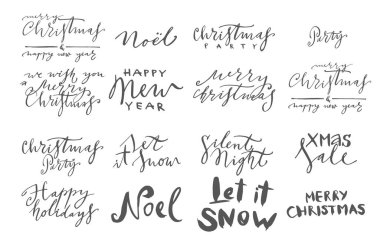 merry
Christmas
&
happy new year
Noël
Christmas
PARTY
Party
we wish you
a Merry
Christmas
HAPPY
New
YEAR
merry
christmas
merry
Christmas
&
happy new year
Christmas
Party
Let
it Snow
Silent
Night
XMAS
Sale
Happy
holidays
Noel
Let it
SNOW
MERRY
CHRISTMAS